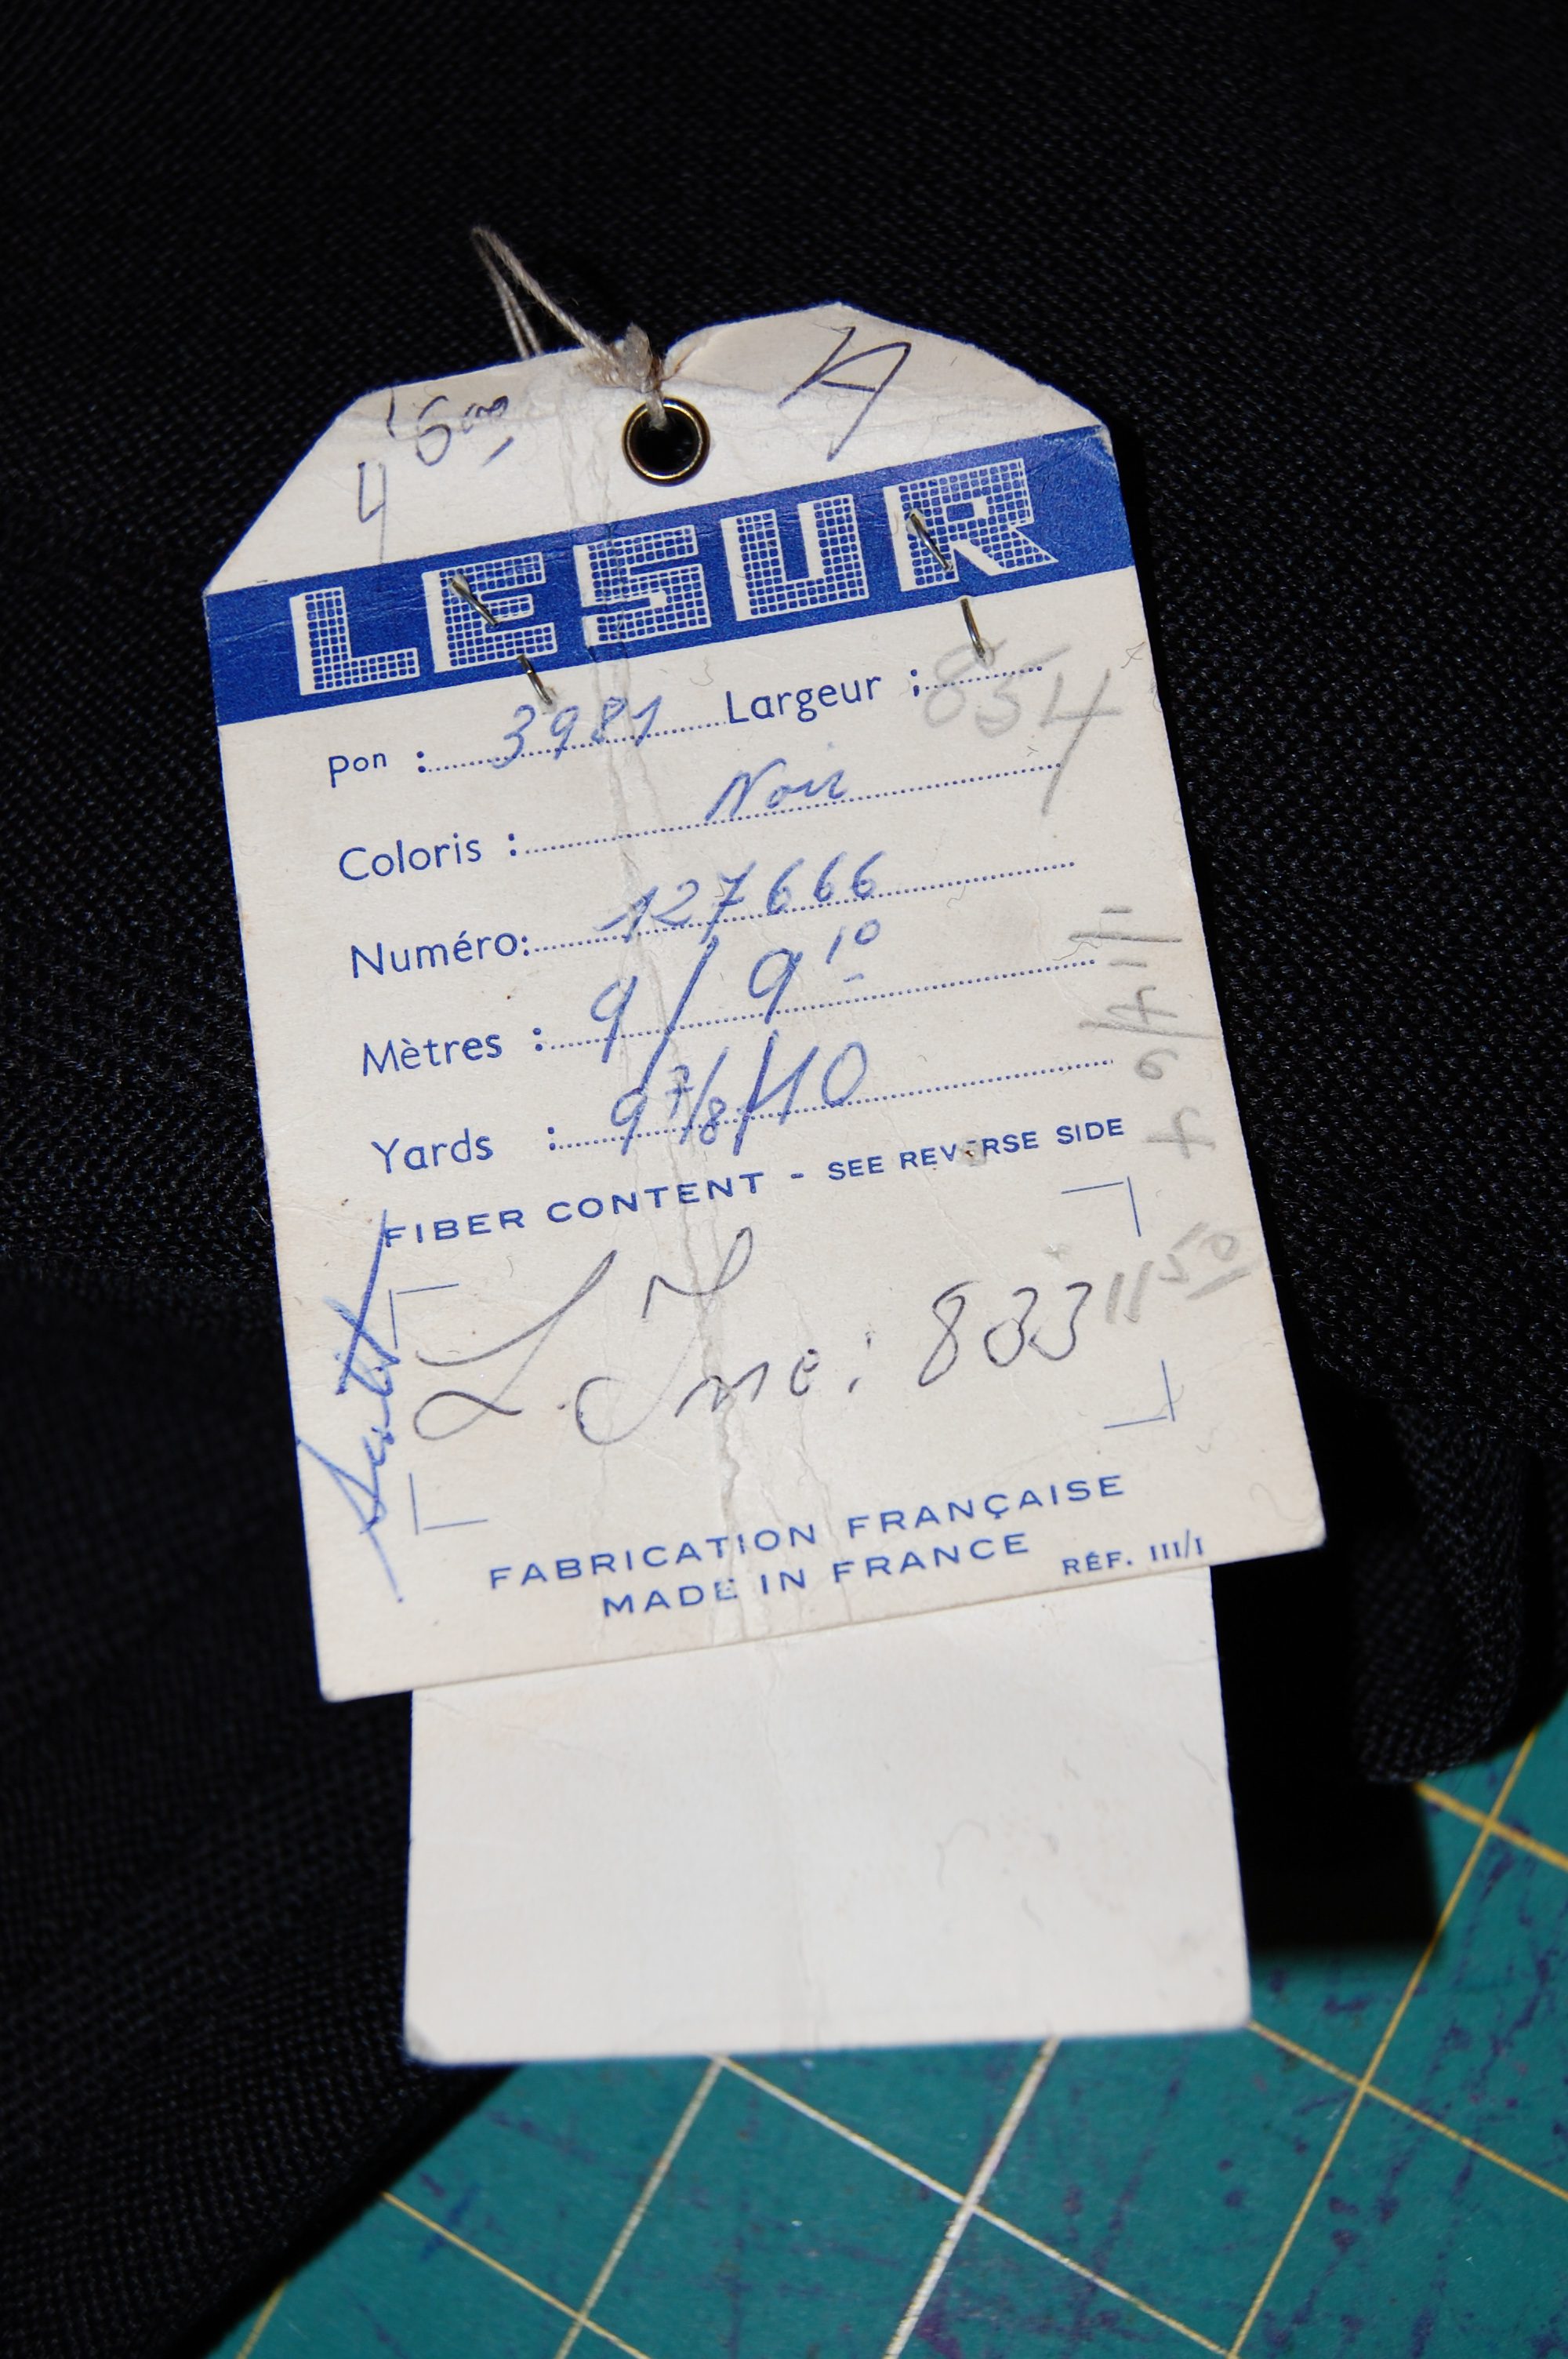 LESUR
Pon : 3981 Largeur : 854
Coloris : Noir
Numéro: 127666
Mètres : 9 / 9 10
Yards : 9 7/8 / 10
FIBER CONTENT - SEE REVERSE SIDE
833
11 50
FABRICATION FRANÇAISE
MADE IN FRANCE RÉF. III/I